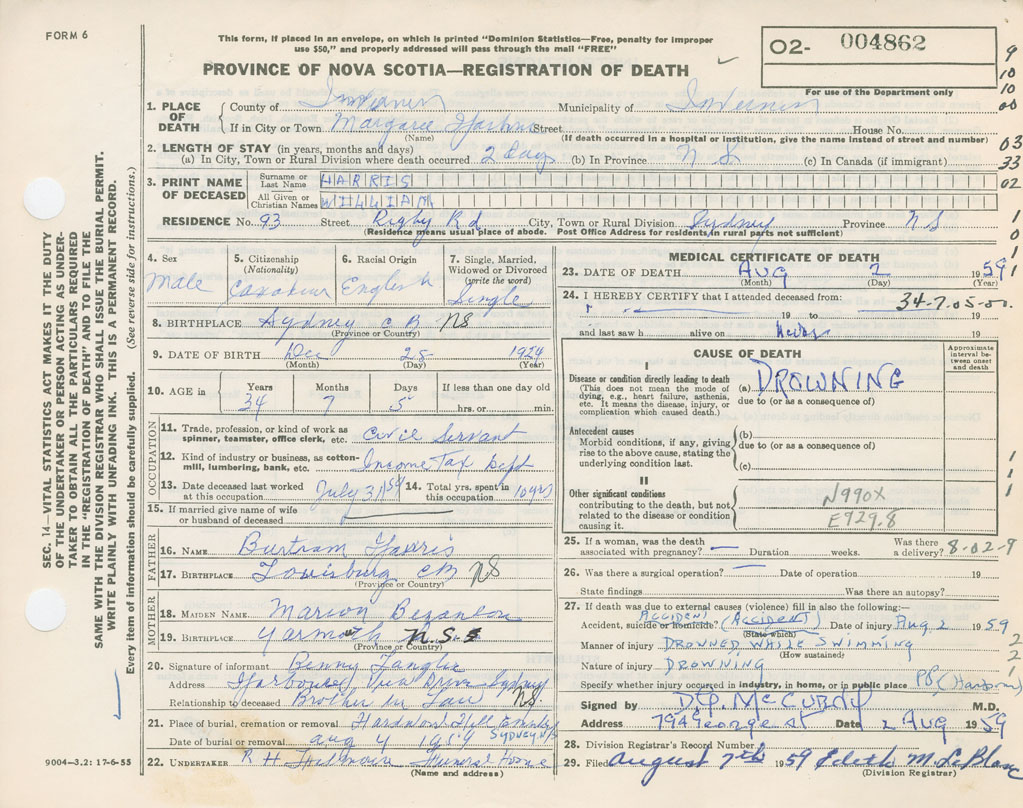 FORM 6
This form, if placed in an envelope, on which is printed "Dominion Statistics—Free, penalty for improper
use $50," and properly addressed will pass through the mail "FREE"
PROVINCE OF NOVA SCOTIA—REGISTRATION OF DEATH
O2- 004862
For use of the Department only
9
10
10
00
03
33
02
1
0
1
1
1. PLACE OF DEATH County of Inverness Municipality of Inverness
If in City or Town Margaree Harbour Street House No.
(Name) (If death occurred in a hospital or institution, give the name instead of street and number)
2. LENGTH OF STAY (in years, months and days)
(a) In City, Town or Rural Division where death occurred 2 days (b) In Province N S (c) In Canada (if immigrant)
3. PRINT NAME OF DECEASED Surname or Last Name HARRIS
All Given or Christian Names WILLIAM
RESIDENCE No. 93 Street Rigby Rd City, Town or Rural Division Sydney Province N S
(Residence means usual place of abode. Post Office Address for residents in rural parts not sufficient)
4. Sex Male
5. Citizenship (Nationality) Canadian
6. Racial Origin English
7. Single, Married, Widowed or Divorced (write the word) Single
8. BIRTHPLACE Sydney CB NS
(Province or Country)
9. DATE OF BIRTH Dec 28 1924
(Month) (Day) (Year)
10. AGE in Years Months Days If less than one day old
34 7 5 hrs. or min.
OCCUPATION
11. Trade, profession, or kind of work as spinner, teamster, office clerk, etc. Civil Servant
12. Kind of industry or business, as cotton-mill, lumbering, bank, etc. Income Tax Dept
13. Date deceased last worked at this occupation July 31 59 14. Total yrs. spent in this occupation 10 yrs
15. If married give name of wife or husband of deceased
FATHER
16. NAME Burtram Harris
17. BIRTHPLACE Louisburg CB NS
(Province or Country)
MOTHER
18. MAIDEN NAME Marion Bezanson
19. BIRTHPLACE Yarmouth N.S.
(Province or Country)
20. Signature of informant Benny
Address Harbour View Drive Sydney
Relationship to deceased Brother in Law NS.
21. Place of burial, cremation or removal Hardwood Hill SYDNEY, N.S.
Date of burial or removal Aug 4 1959
22. UNDERTAKER R H Funeral Home
(Name and address)
MEDICAL CERTIFICATE OF DEATH
23. DATE OF DEATH AUG 2 1959
(Month) (Day) (Year)
24. I HEREBY CERTIFY that I attended deceased from: 34-7.05-00.
19 to 19
and last saw h alive on Never 19
CAUSE OF DEATH
Approximate interval between onset and death
I
Disease or condition directly leading to death (a) DROWNING
(This does not mean the mode of dying, e.g., heart failure, asthenia, etc. It means the disease, injury, or complication which caused death.) due to (or as a consequence of)
Antecedent causes (b)
Morbid conditions, if any, giving rise to the above cause, stating the underlying condition last. due to (or as a consequence of)
(c)
II
Other significant conditions contributing to the death, but not related to the disease or condition causing it.
N990X
E929.8
1
1
1
25. If a woman, was the death associated with pregnancy? Duration weeks. Was there a delivery? 8-02-9
26. Was there a surgical operation? Date of operation 19
State findings Was there an autopsy?
27. If death was due to external causes (violence) fill in also the following:—
ACCIDENT
Accident, suicide or homicide? (ACCIDENT) Date of injury Aug 2 1959
(State which)
Manner of injury DROWNED WHILE SWIMMING
(How sustained)
Nature of injury DROWNING
2
2
1
Specify whether injury occurred in industry, in home, or in public place PP (Harbour)
Signed by D.A. McCURDY M.D.
Address 794 George st Date 2 AUG 1959
28. Division Registrar's Record Number
29. Filed August 7th 1959 Edith M. LeBlanc
(Division Registrar)
SEC. 14—VITAL STATISTICS ACT MAKES IT THE DUTY
OF THE UNDERTAKER OR PERSON ACTING AS UNDER-
TAKER TO OBTAIN ALL THE PARTICULARS REQUIRED
IN THE "REGISTRATION OF DEATH" AND TO FILE THE
SAME WITH THE DIVISION REGISTRAR WHO SHALL ISSUE THE BURIAL PERMIT.
WRITE PLAINLY WITH UNFADING INK. THIS IS A PERMANENT RECORD.
Every item of information should be carefully supplied. (See reverse side for instructions.)
9004—3.2: 17-6-55